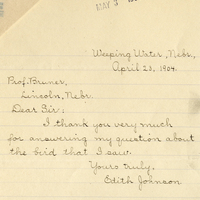 MAY 3
Weeping Water, Nebr.,
April 23, 1904.
Prof. Bruner,
Lincoln, Nebr.
Dear Sir:
I thank you very much
for answering my question about
the bird that I saw.
Yours truly,
Edith Johnson.